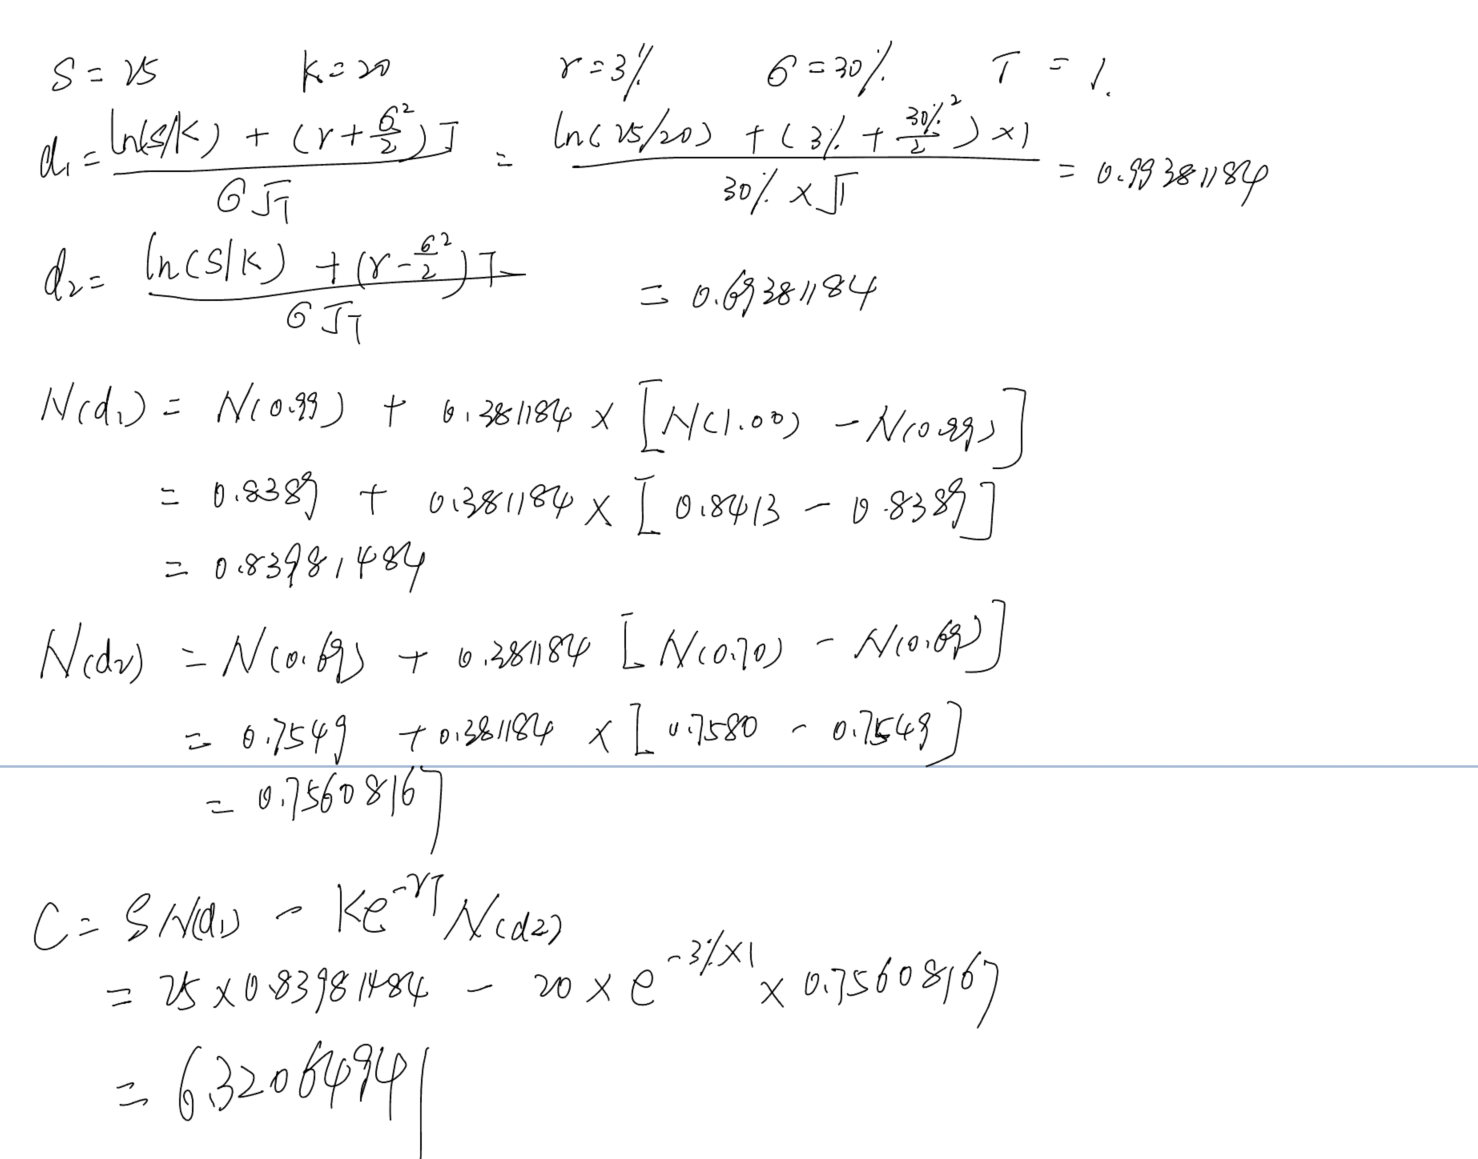 S = 25 K = 20 r = 3% σ = 30% T = 1.
d₁ = (ln(S/K) + (r + σ²/2)T) / (σ√T) = (ln(25/20) + (3% + 30%²/2) × 1) / (30% × √1) = 0.99381184
d₂ = (ln(S/K) + (r - σ²/2)T) / (σ√T) = 0.69381184
N(d₁) = N(0.99) + 0.381184 × [N(1.00) - N(0.99)]
= 0.8389 + 0.381184 × [0.8413 - 0.8389]
= 0.83981484
N(d₂) = N(0.69) + 0.381184 [N(0.70) - N(0.69)]
= 0.7549 + 0.381184 × [0.7580 - 0.7549]
= 0.75608167
C = SN(d₁) - Ke^(-rT) N(d₂)
= 25 × 0.83981484 - 20 × e^(-3%×1) × 0.75608167
= 6.32064941